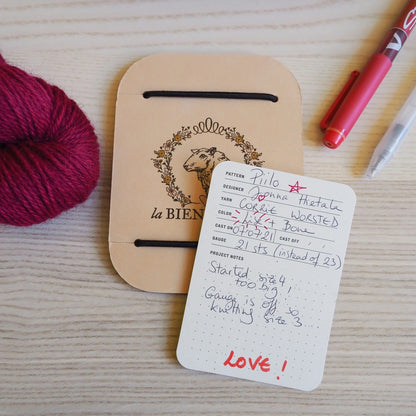 la BIEN
PATTERN Piilo
DESIGNER Jonna
YARN CORRIE WORSTED
COLOR Bone
CAST ON 07/07/21 CAST OFF
GAUGE 21 sts (instead of 23)
PROJECT NOTES
Started size 4
too big!
Gauge is off so
knitting size 3
LOVE!